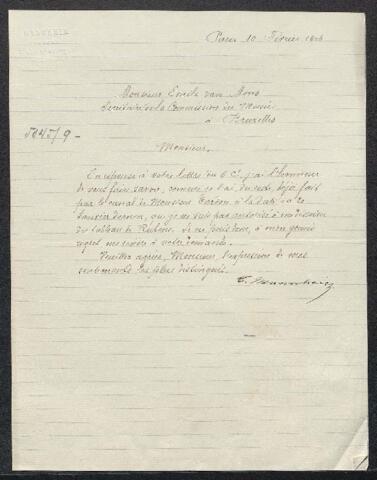 Paris 10 Février
Monsieur Emile van Mons
Secrétaire de la Commission du Musée
à Bruxelles
5045/9 -
Monsieur,
En réponse à votre lettre du 6 Ct, j'ai l'honneur
de vous faire savoir, comme je l'ai, du reste, déjà fait
par le canal de Monsieur à la date
Janvier dernier, que je ne suis pas autorisé à
du tableau de Rubens. Je ne puis donc, à mon grand
regret, me rendre à votre demande.
Veuillez agréer, Monsieur, l'expression de mes
sentiments les plus distingués.